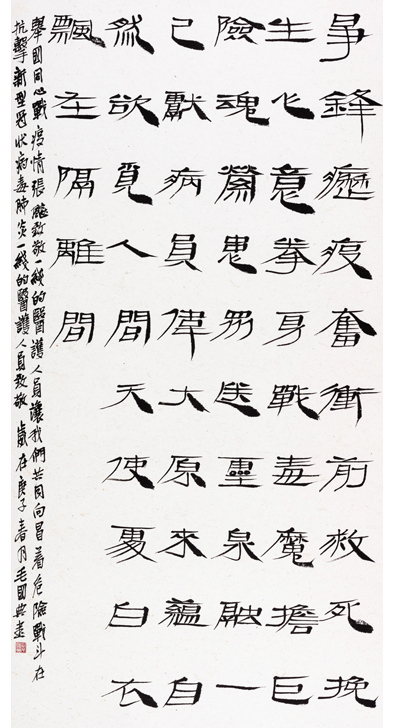 爭鋒癧疫奮衝前救死挽
生心意拳身戰毒魔擔巨
險魂縈患送靈泉融一
己獻病員偉大原來蘊自
然欲覓人間天使白衣
飄在隔離間
舉國同心戰疫情張致敬一綫的醫護人員讓我們共同向冒着危險戰斗在
抗擊新型冠狀病毒肺炎一綫的醫護人員致敬 歲在庚子春月毛國典書